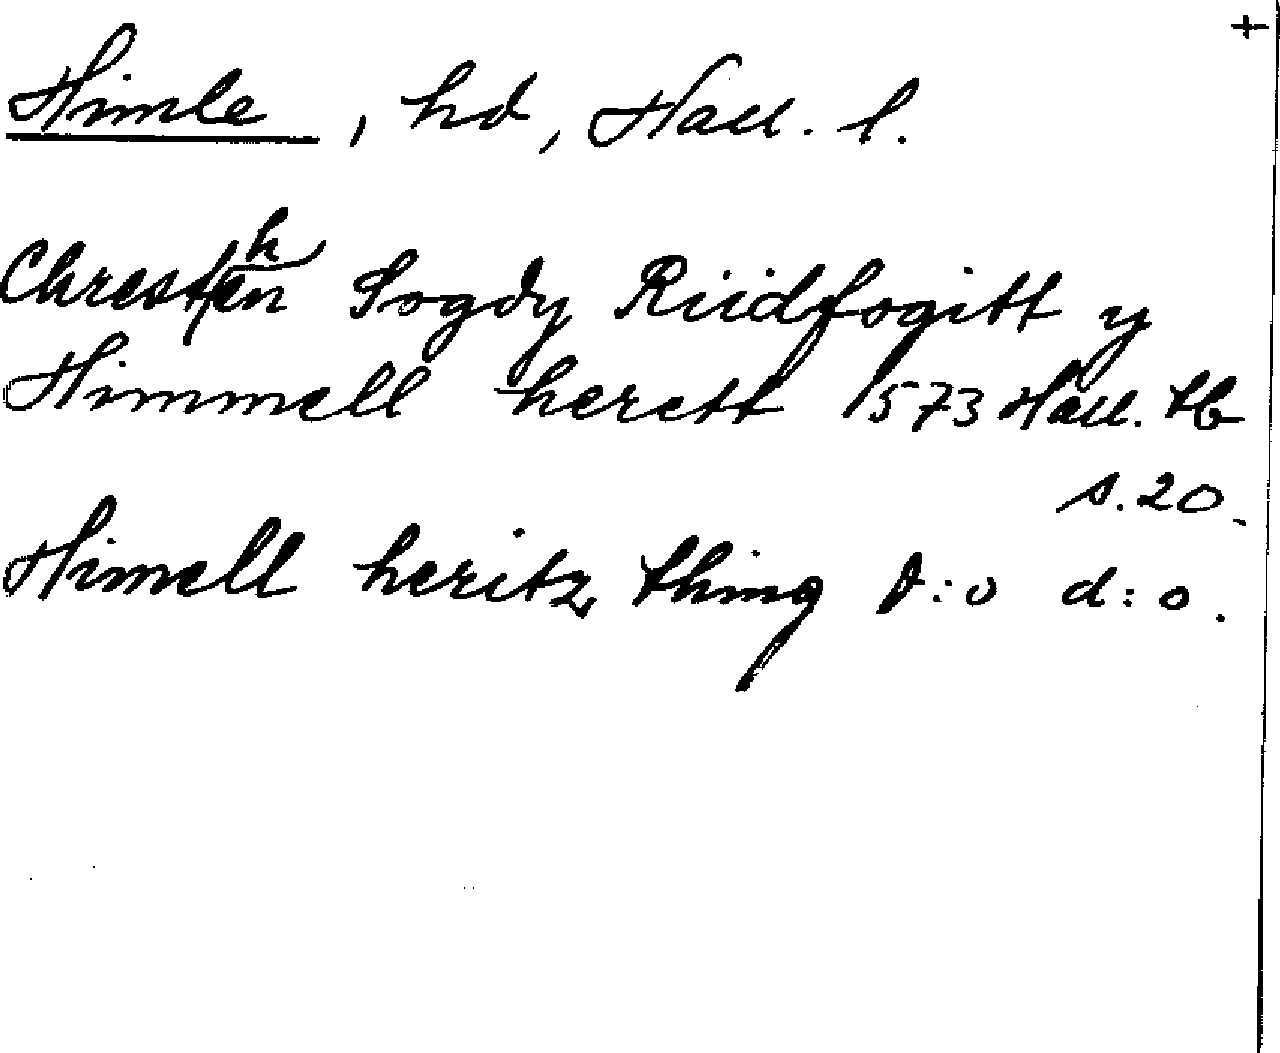 +
Himle, hd, Hall. l.
Chresthen Sogdy Riidfogitt y
Himmell herett 1573 Hall. tb
s. 20.
Himell heritz thing d:o d:o.